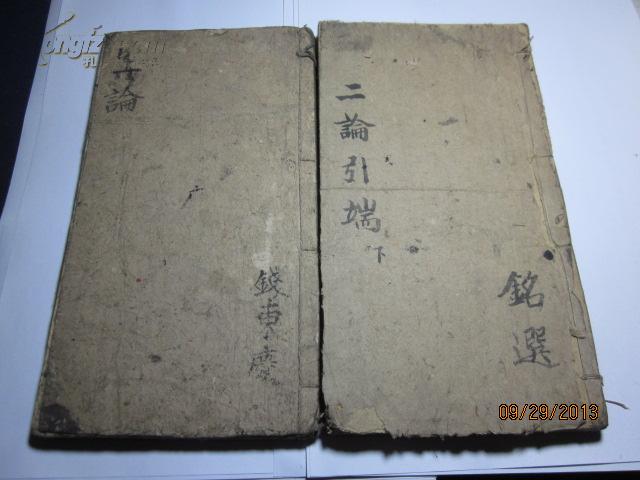 二論引端
下
銘選
論
錢東慶
09/29/2013